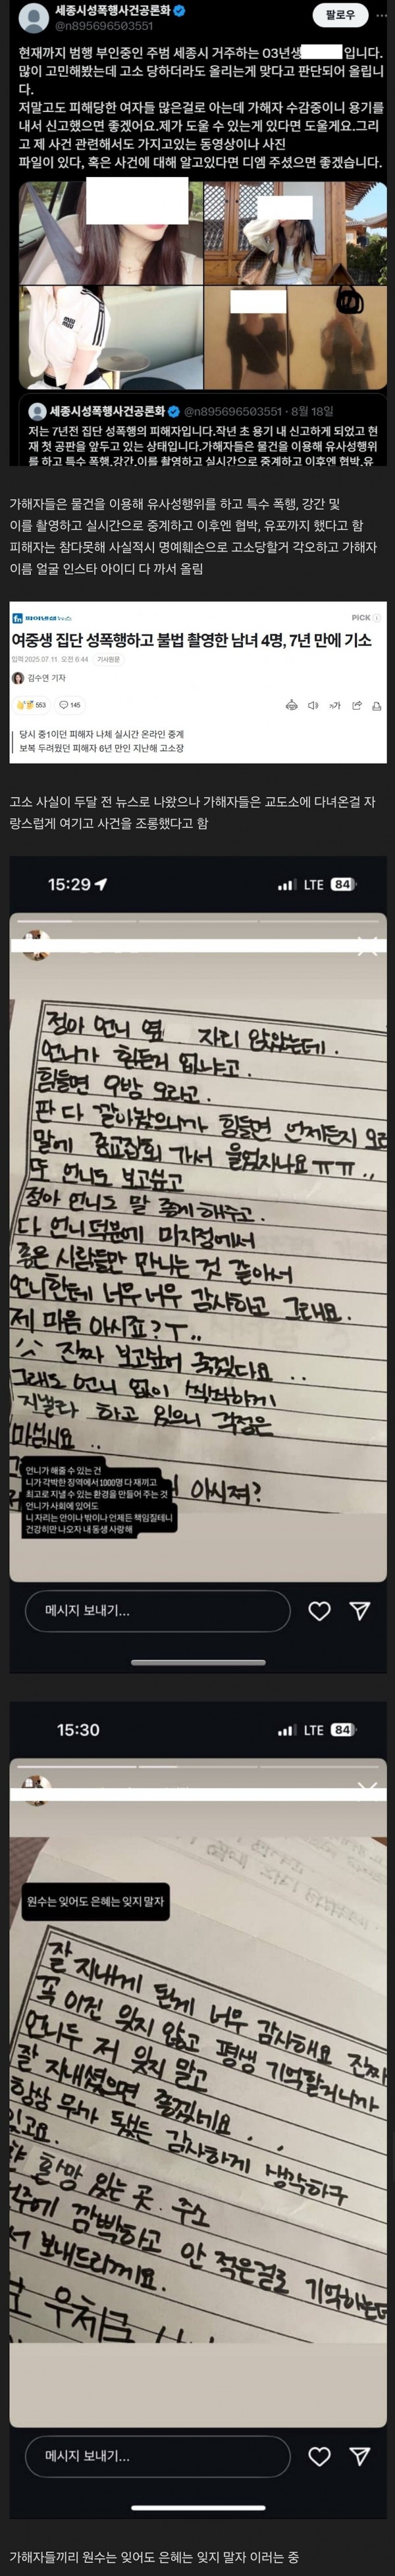 세종시성폭행사건공론화
@n895696503551
팔로우
현재까지 범행 부인중인 주범 세종시 거주하는 03년생 입니다.
많이 고민해봤는데 고소 당하더라도 올리는게 맞다고 판단되어 올립니
다.
저말고도 피해당한 여자들 많은걸로 아는데 가해자 수감중이니 용기를
내서 신고했으면 좋겠어요.제가 도울 수 있는게 있다면 도울게요.그리
고 제 사건 관련해서도 가지고있는 동영상이나 사진
파일이 있다, 혹은 사건에 대해 알고있다면 디엠 주셨으면 좋겠습니다.
miu
miu
세종시성폭행사건공론화 @n895696503551 · 8월 18일
저는 7년전 집단 성폭행의 피해자입니다.작년 초 용기 내 신고하게 되었고 현
재 첫 공판을 앞두고 있는 상태입니다.가해자들은 물건을 이용해 유사성행위
를 하고 특수 폭행,강간,이를 촬영하고 실시간으로 중계하고 이후엔 협박,유
가해자들은 물건을 이용해 유사성행위를 하고 특수 폭행, 강간 및
이를 촬영하고 실시간으로 중계하고 이후엔 협박, 유포까지 했다고 함
피해자는 참다못해 사실적시 명예훼손으로 고소당할거 각오하고 가해자
이름 얼굴 인스타 아이디 다 까서 올림
fn 파이낸셜뉴스
PiCK
여중생 집단 성폭행하고 불법 촬영한 남녀 4명, 7년 만에 기소
입력 2025.07.11. 오전 6:44 기사원문
김수연 기자
553 145
가가
당시 중1이던 피해자 나체 실시간 온라인 중계
보복 두려웠던 피해자 6년 만인 지난해 고소장
고소 사실이 두달 전 뉴스로 나왔으나 가해자들은 교도소에 다녀온걸 자
랑스럽게 여기고 사건을 조롱했다고 함
15:29 LTE 84
정아 언니 옆 자리 앉았는데.
언니가 힘든거 없냐고.
힘들면 오방 오라고.
판 다 깔아놨으니까 힘들면 언제든지 오라
말에 종교집회 가서 울었자나요 ㅠㅠ..
또 언니도 보고싶고
정아 언니도 말 좋게 해주고.
다 언니 덕분에 미지정에서
좋은 사람들만 만나는 것 같아서
언니한테 너무너무 감사하고 그래요.
제 마음 아시죠? ㅜ..
진짜 보고싶어 죽겠다요..
그래도 언니 없이 씩씩하게
지낼라 하고 있으니 걱정은
마십시요..
아시져?
언니가 해줄 수 있는 건
니가 각박한 징역에서 1000명 다 재끼고
최고로 지낼 수 있는 환경을 만들어 주는 것
언니가 사회에 있어도
니 자리는 안이나 밖이나 언제든 책임질테니
건강히만 나오자 내 동생 사랑해
메시지 보내기...
15:30 LTE 84
원수는 잊어도 은혜는 잊지 말자
잘 지내게 된게 너무 감사해요 진짜
꼭 이건 잊지 않고 평생 기억할거니까
언니두 저 잊지 말고
잘 지내셨으면 좋겠네요..
항상 뭐가 됐든 감사하게 생각하구
있고요.
희망 있는 곳. 주소
주에 깜빡하고 안 적은걸로 기억하는데
서 보내드릴게요.
우체국
메시지 보내기...
가해자들끼리 원수는 잊어도 은혜는 잊지 말자 이러는 중